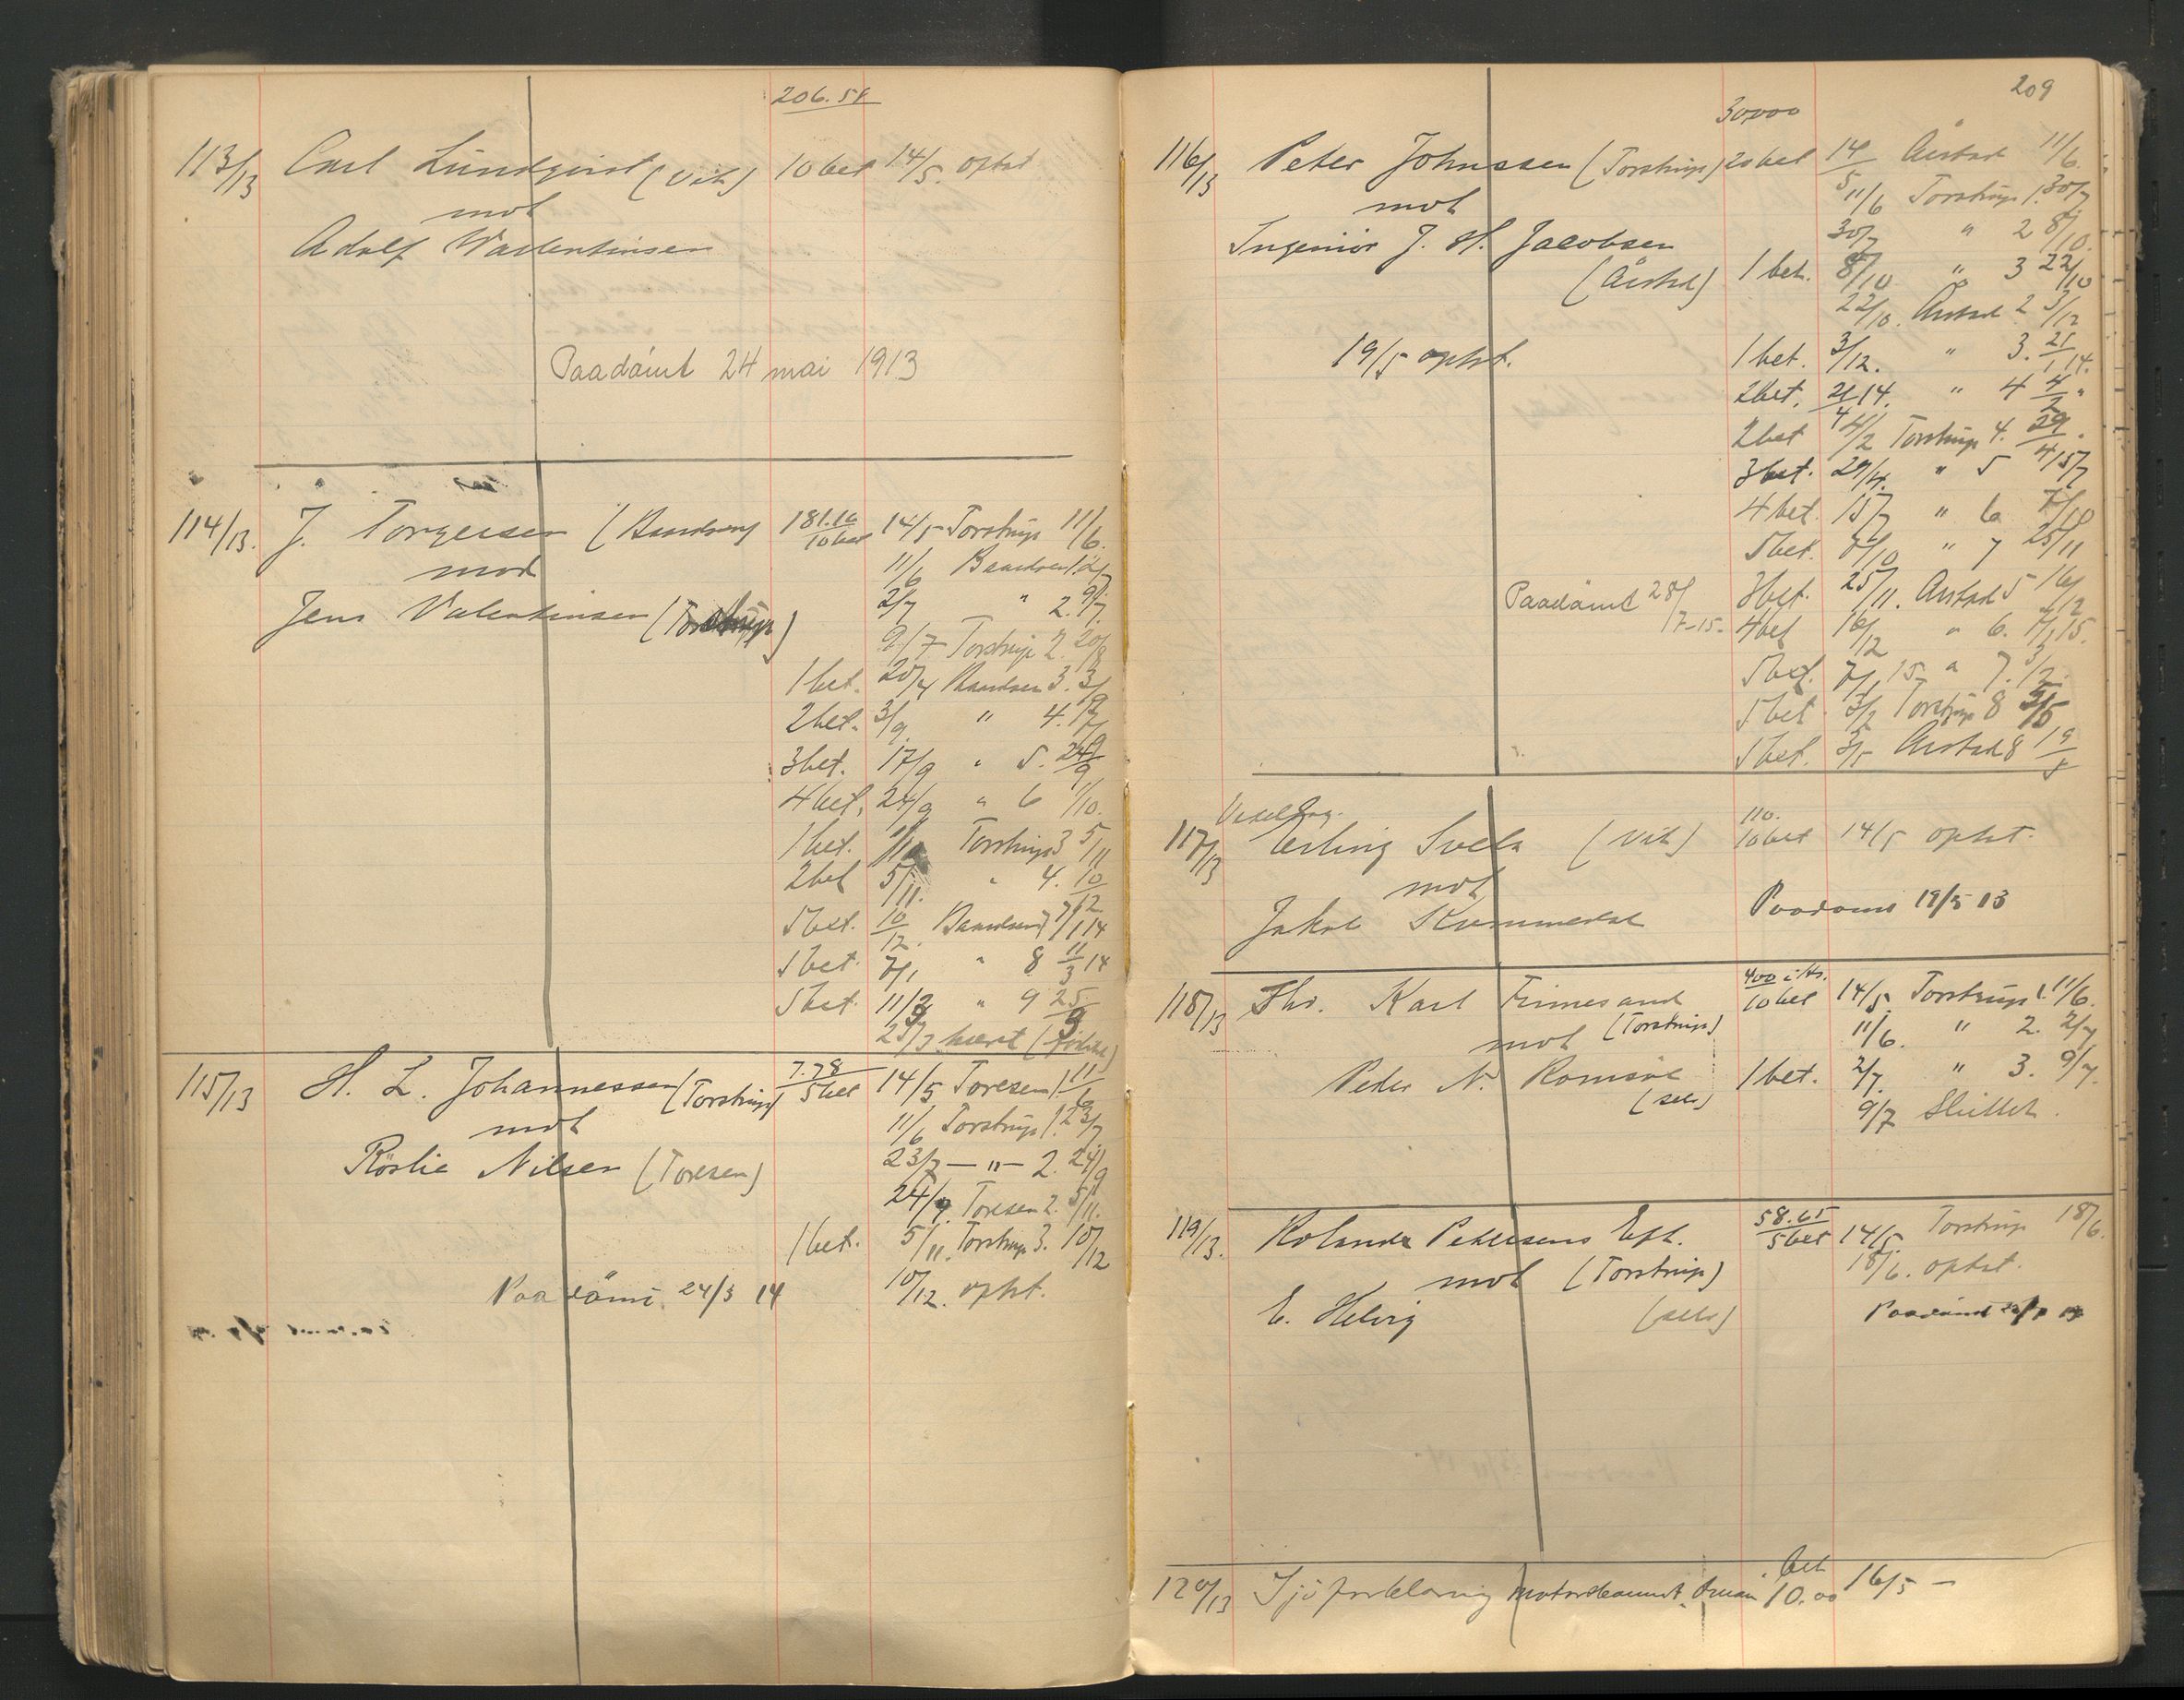 206.58
113/13 Carl Lundqvist (Vit) 10 bet 14/5. optat
mot
Adolf Wallentinsen
Paadömt 24 mai 1913
114/13. J. Torgersen 181.16 10 bet 14/5 Torstrup 11/6.
mod 11/6
Jens Valentinsen (Torstrup) 2/7 " 2. 9/7.
9/7 Torstrup 2. 20/8
1 bet. 3. 3/9
2 bet. 3/9. " 4. 17/9
3 bet. 17/9 " 5. 24/9
4 bet. 24/9 " 6 1/10.
1 bet. Torstrup 3 5/11
2 bet 5/11. " 4. 10/12
5 bet. 10/12. 7 7/1 14
5 bet. 7/1 " 8 11/3 14
5 bet. 11/3 " 9 25/3
25/3 hævet
115/13 H. L. Johannessen (Torstrup) 7.78 5 bet 14/5 Toresen 1. 11/6
mot 11/6 Torstrup 1. 23/7
Röslie Nilsen (Toresen) 23/7 — " — 2. 24/9
24/9. Toresen 2. 5/11.
1 bet. 5/11. Torstrup 3. 10/12
Paadömt. 24/3 14 10/12. optat.
209
30000
116/13 Peter Johnssen (Torstrup) 20 bet 14/5 Årstad 11/6.
mot 11/6 Torstrup 1. 30/7
Ingeniör J. H. Jacobsen 30/7 " 2 8/10.
(Årstad) 1 bet. 8/10 " 3 22/10
22/10. Årstad 2 3/12
19/5 optat. 1 bet. 3/12. " 3. 21/1 14.
2 bet. 21/1 14. " 4 4/2 "
2 bet 4/2 Torstrup 4. 29/4.
3 bet. 29/4. " 5 15/7
4 bet. 15/7 " 6 7/10
5 bet. 7/10 " 7 25/11
Paadömt 28/7-15. 3 bet. 25/11. Årstad 5 16/12
4 bet 16/12 " 6. 7/1 15.
5 bet. 7/1 15 " 7. 3/2.
5 bet. 3/2 Torstrup 8 3/5
5 bet. 3/5 Årstad 8 19/5
117/13 Erling Svela (Vit) 110. 10 bet 14/5 optat.
mot
Jakob Kommedal Paadömt 19/5 13
118/13 Thr. Karl Finnesand 400 10 bet 14/5. Torstrup 1. 11/6.
mot (Torstrup) 11/6. " 2. 2/7
Peder N. Romsöe 1 bet. 2/7. " 3. 9/7.
(selv) 9/7 Sluttet.
119/13. Rolanda Pettersens Eft. 58.65 5 bet 14/5. Torstrup 18/6.
mot (Torstrup) 18/6. optat.
E. Helvig (selv) Paadömt
120/13 Sjöforklaring bet 10.00 16/5 —